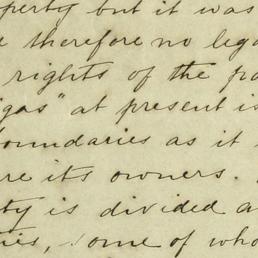 perty but it was
therefore no lega
rights of the pa
gas" at present is
oundaries as it
re its owners.
ty is divided a
ies, some of who